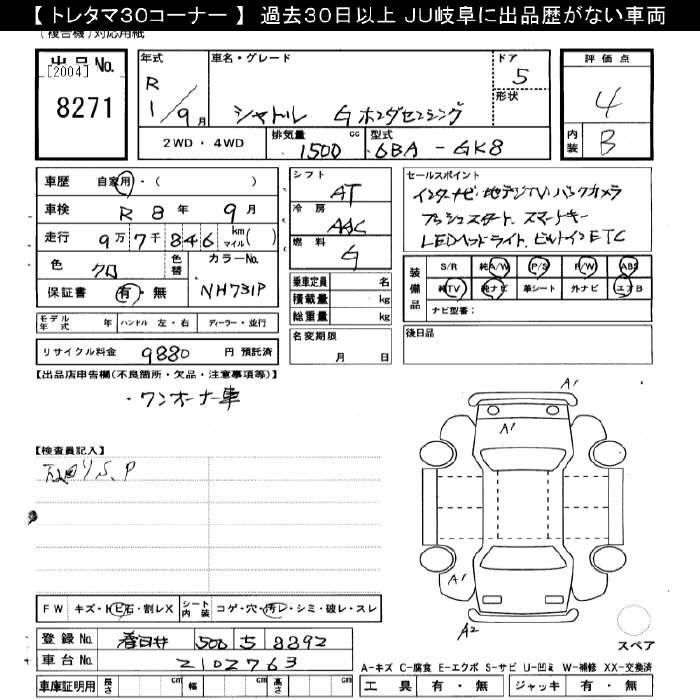 【 トレタマ30コーナー 】 過去30日以上 JU岐阜に出品歴がない車両
(複合機)対応用紙
出品No.
[2004]
8271
年式
R
1/9月
車名・グレード
シャトル Gホンダセンシング
ドア
5
形状
2WD・4WD
排気量 cc
1500
型式
6BA - GK8
評価点
4
内装
B
車歴 自家用・( )
車検 R 8年 9月
走行 9万7千846 km マイル( )
色 クロ
色替
カラーNo.
NH731P
保証書 有・無
モデル年式 年 ハンドル 左・右 ディーラー・並行
リサイクル料金 9880 円 預託済
シフト
AT
冷房
AAC
燃料
G
乗車定員 名
積載量 kg
総重量 kg
名変期限
月 日
セールスポイント
インターナビ・地デジTV・バックカメラ
プッシュスタート、スマートキー
LEDヘッドライト、ビルトインETC
装備品
S/R 純A/W P/S P/W ABS
純TV 純ナビ 革シート 外ナビ エアB
ナビ型番:
後日品
【出品店申告欄(不良箇所・欠品・注意事項等)】
・ワンオーナー車
【検査員記入】
下廻りS、P
A1
A1
A1
A2
スペア
FW キズ・トビ石・割レX
シート内装 コゲ・穴・汚レ・シミ・破レ・スレ
登録No. 春日井 500 5 8392
車台No. 2102763
車庫証明用 長さ cm 幅 cm 高さ cm
A-キズ C-腐食 E-エクボ S-サビ U-凹ミ W-補修 XX-交換済
工具 有・無 ジャッキ 有・無